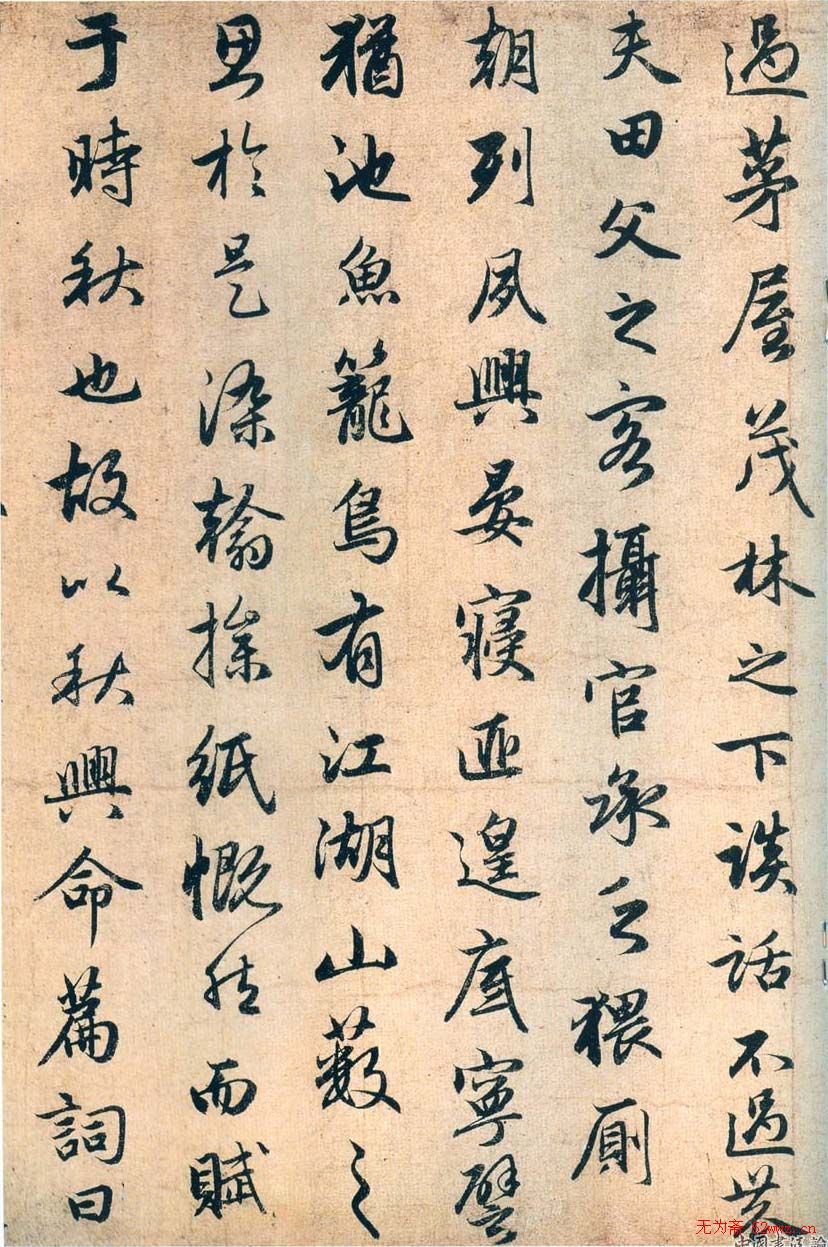 過茅屋茂林之下談話不過農
夫田父之客攝官承乏猥廁
朝列夙興晏寢匪遑底寧譬
猶池魚籠鳥有江湖山藪之
思於是染翰操紙慨然而賦
于時秋也故以秋興命篇詞曰
无为斋 52wwz.cn
中国书法论